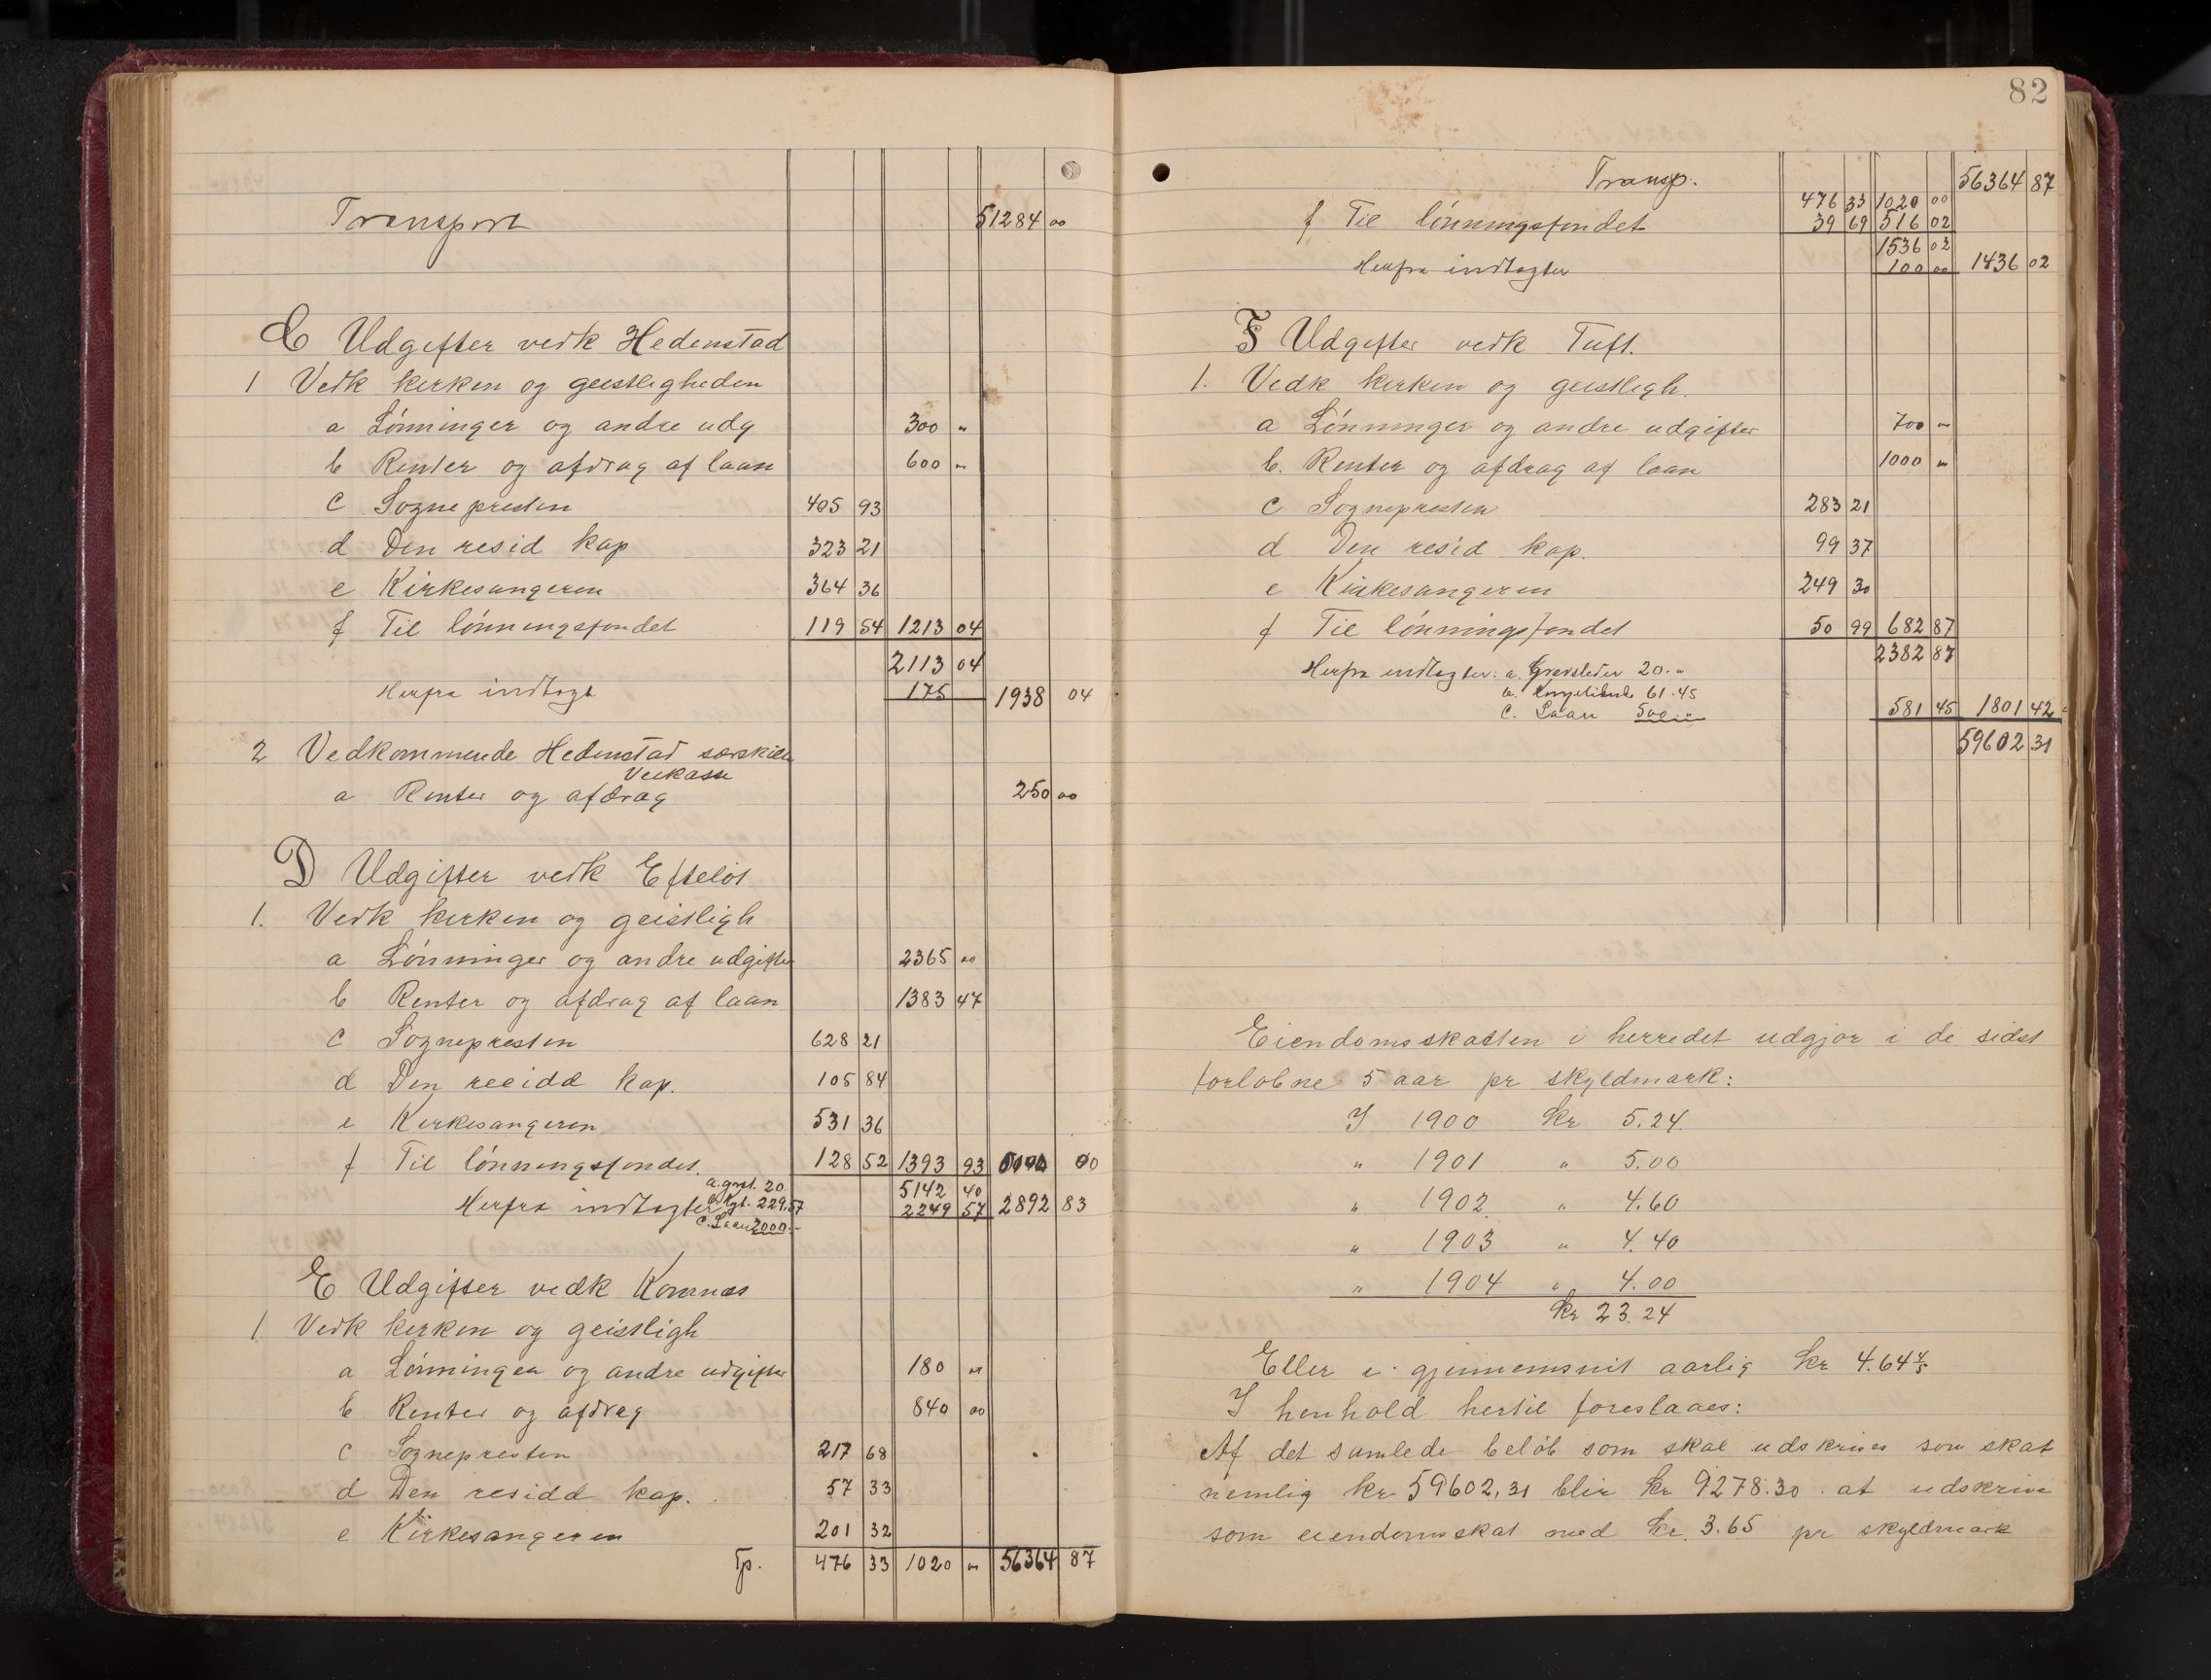 Transport 51284 00
C Udgifter vedk Hedenstad
1 Vedk kirken og geistligheden
a Lönninger og andre udg 300 "
b Renter og afdrag af laan 600 "
c Sognepresten 405 93
d Den resid kap 323 21
e Kirkesangeren 364 36
f Til lönningsfondet 119 54 1213 04
2113 04
Herfra indtægt 175 1938 04
2 Vedkommende Hedenstad særskilte
Veikasse
a Renter og afdrag 250 00
D Udgifter vedk Efteløt
1. Vedk kirken og geistligh
a Lönninger og andre udgifter 2365 00
b Renter og afdrag af laan 1383 47
c Sognepresten 628 21
d Den residd kap. 105 84
e Kirkesangeren 531 36
f Til lönningsfondet. 128 52 1393 93
a. gravst. 20 5142 40
Herfra indtægter b. Kgt. 229.57 2249 57 2892 83
c. Laan 2000.-
E Udgifter vedk Komnæs
1 Vedk kirken og geistligh
a Lönninger og andre udgifter 180 "
b Renter og afdrag 840 00
c Sognepresten 217 68
d Den residd kap. 57 33
e Kirkesangeren 201 32
Tp. 476 33 1020 " 56364 87
82
Transp. 476 33 1020 00 56364 87
f Til lönningsfondet 39 69 516 02
1536 02
Herfra indtægter 100 00 1436 02
F Udgifter vedk Tuft.
1. Vedk kirken og geistligh.
a Lönninger og andre udgifter 700 "
b. Renter og afdrag af laan 1000 "
c Sognepresten 283 21
d Den resid kap. 99 37
e Kirkesangeren 249 30
f Til lönningsfondet 50 99 682 87
2382 87
Herfra indtægter: a. Gravsteder 20.-
b. Kongetiende 61.45
c. Laan 500.- 581 45 1801 42
59602 31
Eiendomsskatten i herredet udgjør i de sidst
forløbne 5 aar pr skyldmark:
I 1900 kr 5.24.
" 1901 " 5.00
" 1902 " 4.60
" 1903 " 4.40
" 1904 " 4.00
kr 23.24
Eller i gjennemsnit aarlig kr 4.64 4/5
I henhold hertil foreslaaes:
Af det samlede beløb som skal udskrives som skat
nemlig kr 59602,31 blir kr 9278.30 at udskrive
som eiendomsskat med kr. 3.65 pr skyldmark